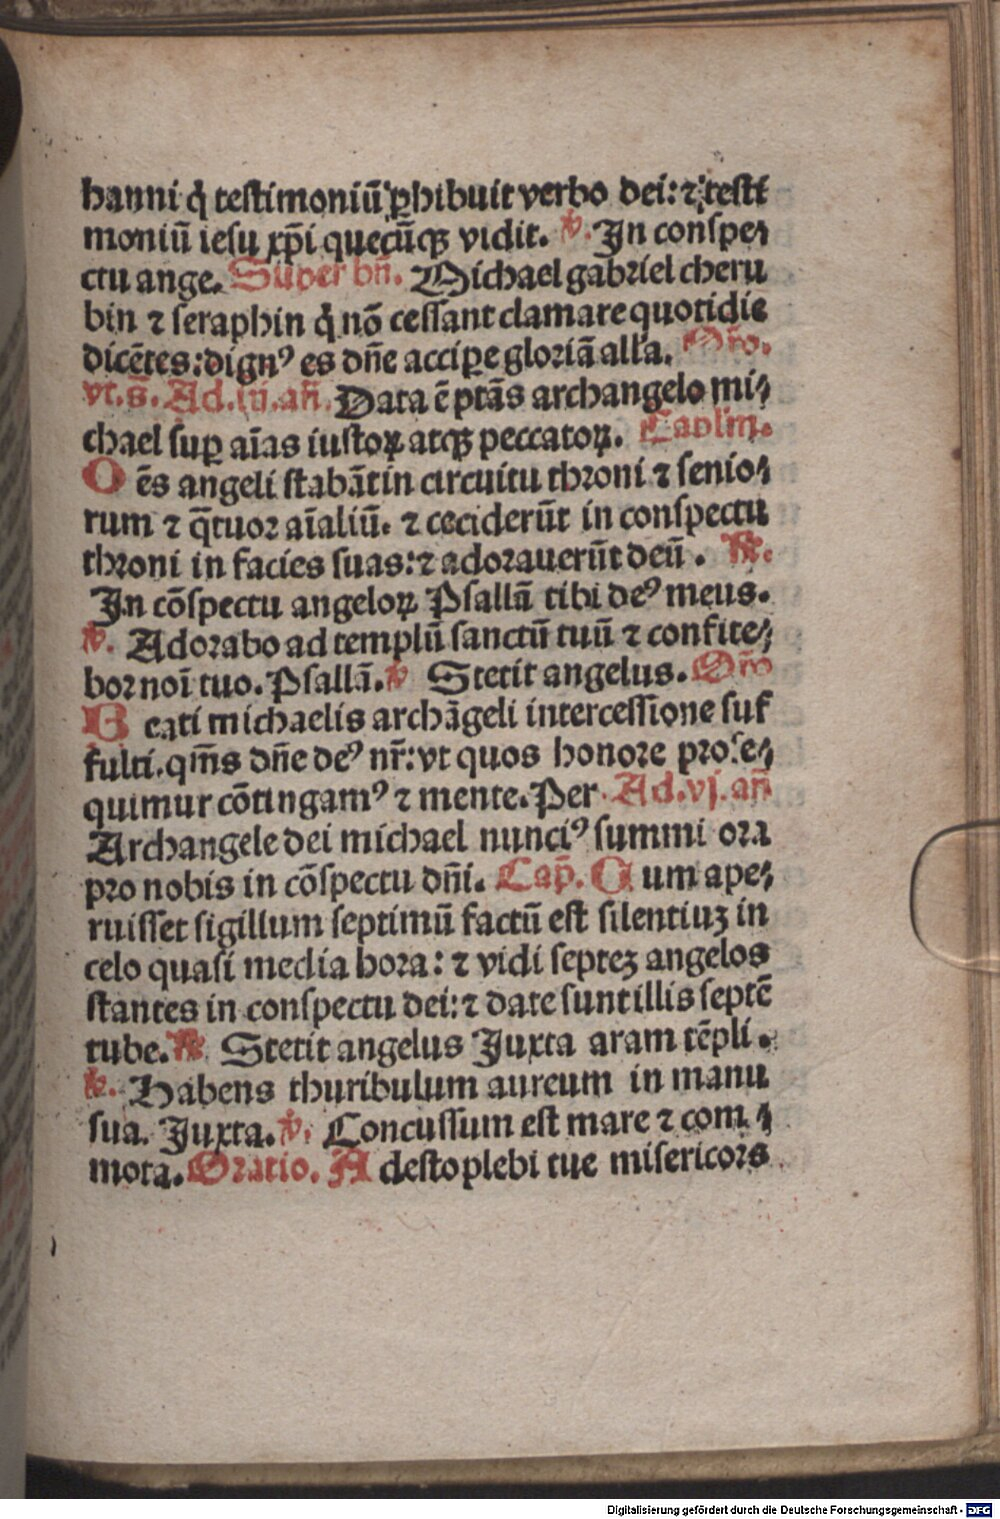 hanni q̇ testimoniū ꝑhibuit verbo dei: ⁊ testi
moniū iesu xp̄i quecūqꝫ vidit. ℣. In conspe⸗
ctu ange. Super bn̄. Michael gabriel cheru
bin ⁊ seraphin q̇ nō cessant clamare quotidie
dicētes: dignꝰ es dn̄e accipe gloriā alla. Oro.
vt. s̄. Ad .iij. an̄. Data ē ptās archangelo mi⸗
chael suꝑ aīas iustoꝝ atqꝫ peccatoꝝ. Caplm.
Oēs angeli stabāt in circuitu throni ⁊ senio⸗
rum ⁊ q̄tuor aīaliū. ⁊ ceciderūt in conspectu
throni in facies suas: ⁊ adorauerūt deū. ℟.
In cōspectu angeloꝝ Psallā tibi deꝰ meus.
℣. Adorabo ad templū sanctū tuū ⁊ confite⸗
bor noī tuo. Psallā. ℣ Stetit angelus. Oro
Beati michaelis archāgeli intercessione suf
fulti. qm̄s dn̄e deꝰ nr̄: vt quos honore prose⸗
quimur cōtingamꝰ ⁊ mente. Per. Ad .vj. an̄
Archangele dei michael nunciꝰ summi ora
pro nobis in cōspectu dn̄i. Cap̄. Cum ape⸗
ruisset sigillum septimū factū est silentiuꝫ in
celo quasi media hora: ⁊ vidi septeꝫ angelos
stantes in conspectu dei: ⁊ date sunt illis septē
tube. ℟ Stetit angelus Juxta aram tēpli.
℣. Habens thuribulum aureum in manu
sua. Juxta. ℣. Concussum est mare ⁊ com⸗
mota. Oratio. Adesto plebi tue misericors
Digitalisierung gefördert durch die Deutsche Forschungsgemeinschaft - DFG